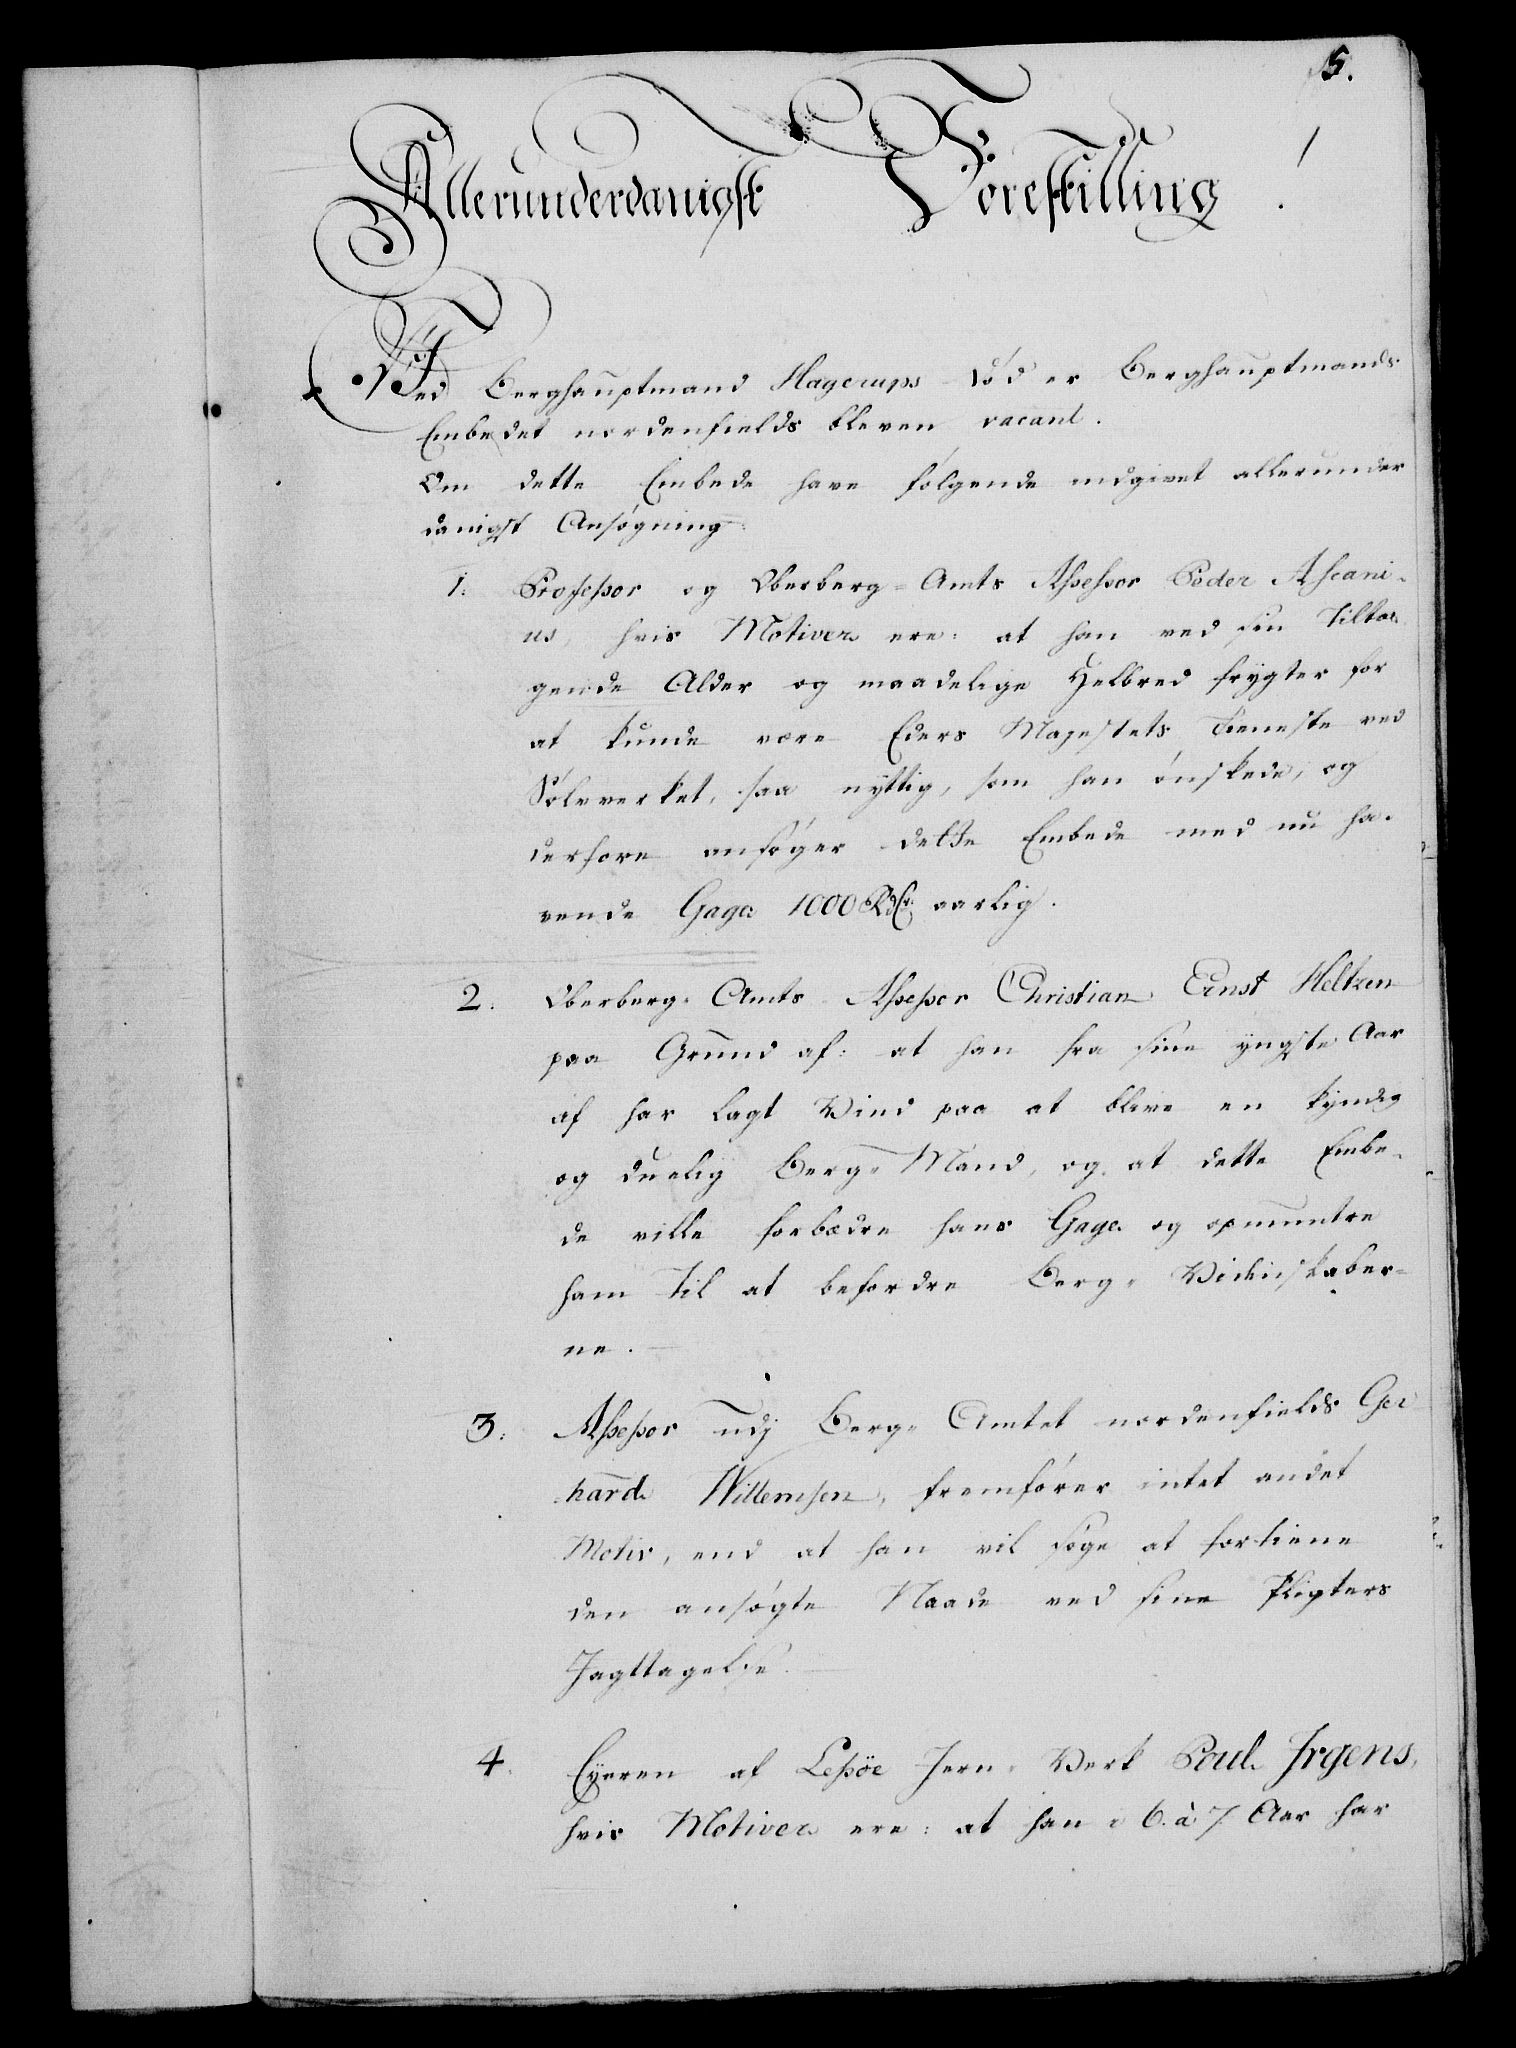 5.
1
Allerunderdanigst Forestilling.
Ved Berghauptmand Hagerups Död er Berghauptmands
Embedet nordenfields bleven vacant.
Om dette Embede have fölgende indgivet allerunder
danigst Ansögning:
1. Professor og Oberberg-Amts Assessor Peder Ascani-
us, hvis Motiver ere: at han ved sin tilta-
gende Alder og maadelige Helbred frygter for
at kunde være Eders Majestets Tieneste ved
Sölvverket, saa nyttig, som han önskede, og
derfore ansöger dette Embede med nu ha-
vende Gage 1000 Rdlr. aarlig.
2. Oberberg-Amts Assessor Christian Ernst Heltzen
paa Grund af: at han fra sine yngste Aar
af har lagt Vind paa at blive en kyndig
og duelig Berg-Mand, og at dette Embe-
de ville forbedre hans Gage og opmuntre
ham til at befordre Berg-Videnskaber-
ne.
3. Assessor udj Berg-Amtet nordenfields Ger
hard Willemsen, fremförer intet andet
Motiv, end at han vil söge at fortiene
den ansögte Naade ved sine Pligters
Jagttagelse.
4. Eyeren af Lessöe Jern-Verk Poul Irgens,
hvis Motiver ere: at han i 6. à 7. Aar har